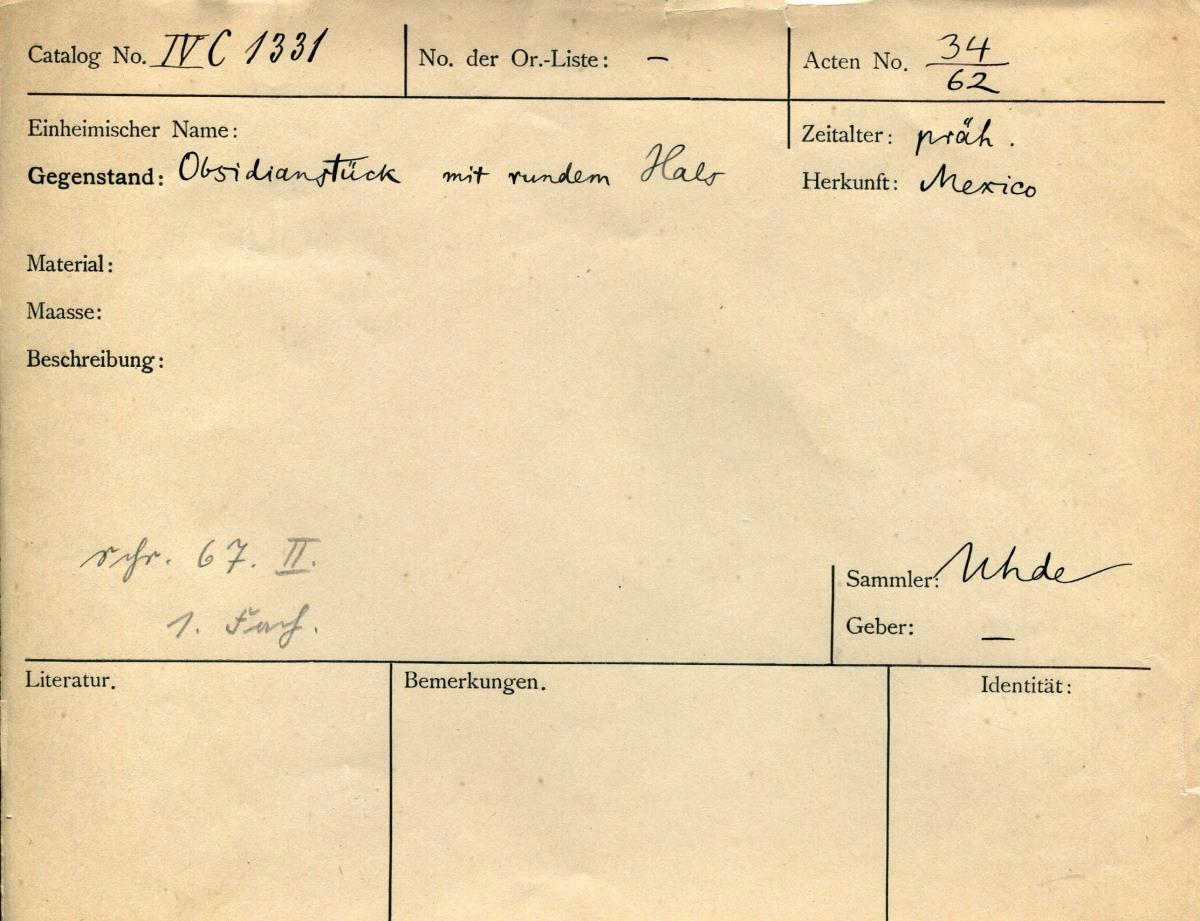 Catalog No. IV C 1331 No. der Or.-Liste: – Acten No. 34/62
Einheimischer Name: Zeitalter: präh.
Gegenstand: Obsidianstück mit rundem Hals Herkunft: Mexico
Material:
Maasse:
Beschreibung:
schr. 67. II.
1. Fach.
Sammler: Uhde
Geber: –
Literatur. Bemerkungen. Identität: